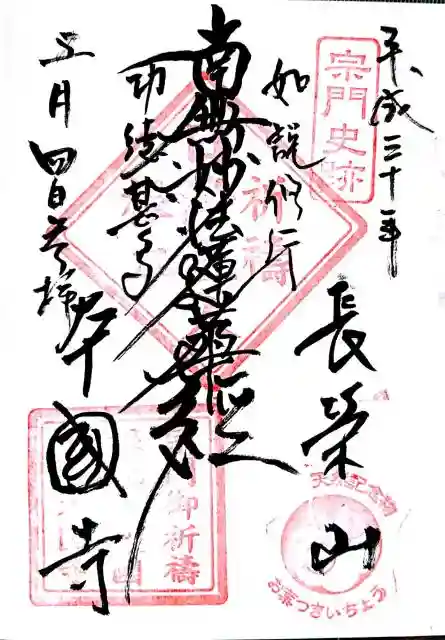 平成三十一年
宗門史跡
長榮山
天然記念物
お葉つきいちょう
如説修行
南無妙法蓮華経
功徳甚多
祈祷
五月四日登拝
本國寺
御祈祷